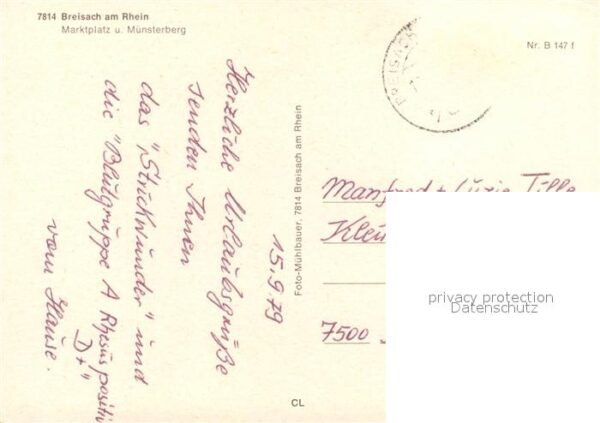 7814 Breisach am Rhein
Marktplatz u. Münsterberg
Nr. B 147 f
BREISACH
15.9.79
Herzliche Urlaubsgrüße
senden Ihnen
das "Strickwunder" und
die "Blutgruppe A Rhesus positiv
D+"
vom Hause.
Foto-Mühlbauer, 7814 Breisach am Rhein
CL
Manfred + Luzie Tille
7500
privacy protection
Datenschutz